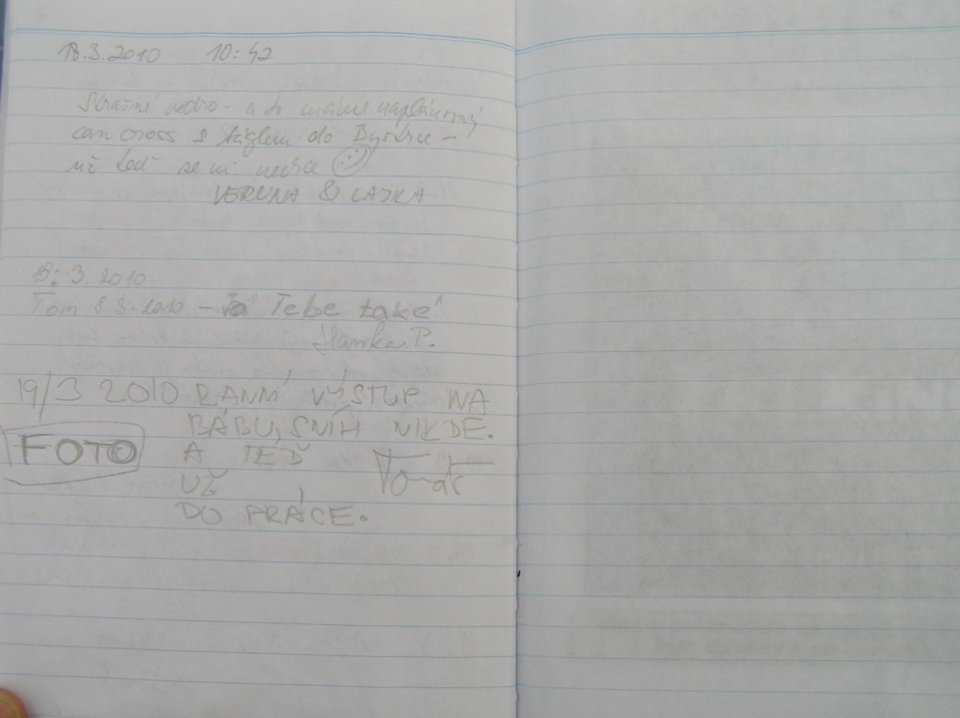 18.3.2010 10:42
Strašné vedro - a to máme naplánovaný
can cross s do -
už teď se mi nechce
VERUNA & LAJKA
18. 3. 2010
Tom 8.3.2010 - "Tebe také"
Hanka P.
19/3 2010 RANNÍ VÝSTUP NA
BÁBU, SNÍH NIKDE.
FOTO A TEĎ
UŽ
DO PRÁCE.